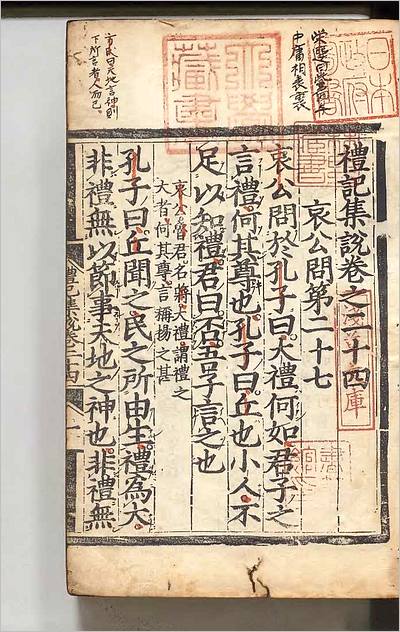 中庸相表裏
方氏曰天地言神則
下所言者人而已
日本
政府
圖書
大學
藏書
禮記集說卷之二十四
哀公問第二十七
哀公問於孔子曰大禮何如君子之
言禮何其尊也孔子曰丘也小人不
足以知禮君曰否吾子言之也
哀公魯君名蔣大禮謂禮之
大者何其尊言稱揚之甚
孔子曰丘聞之民之所由生禮為大
非禮無以節事天地之神也非禮無